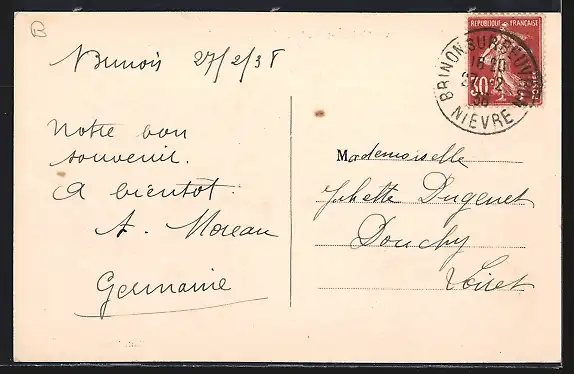 27/2/38
Notre bon
souvenir.
A bientot.
A. Moreau
Germaine
REPUBLIQUE FRANÇAISE
30
BRINON SUR BEUVRON
NIÈVRE
Mademoiselle
Dugenet
Douchy
Loiret